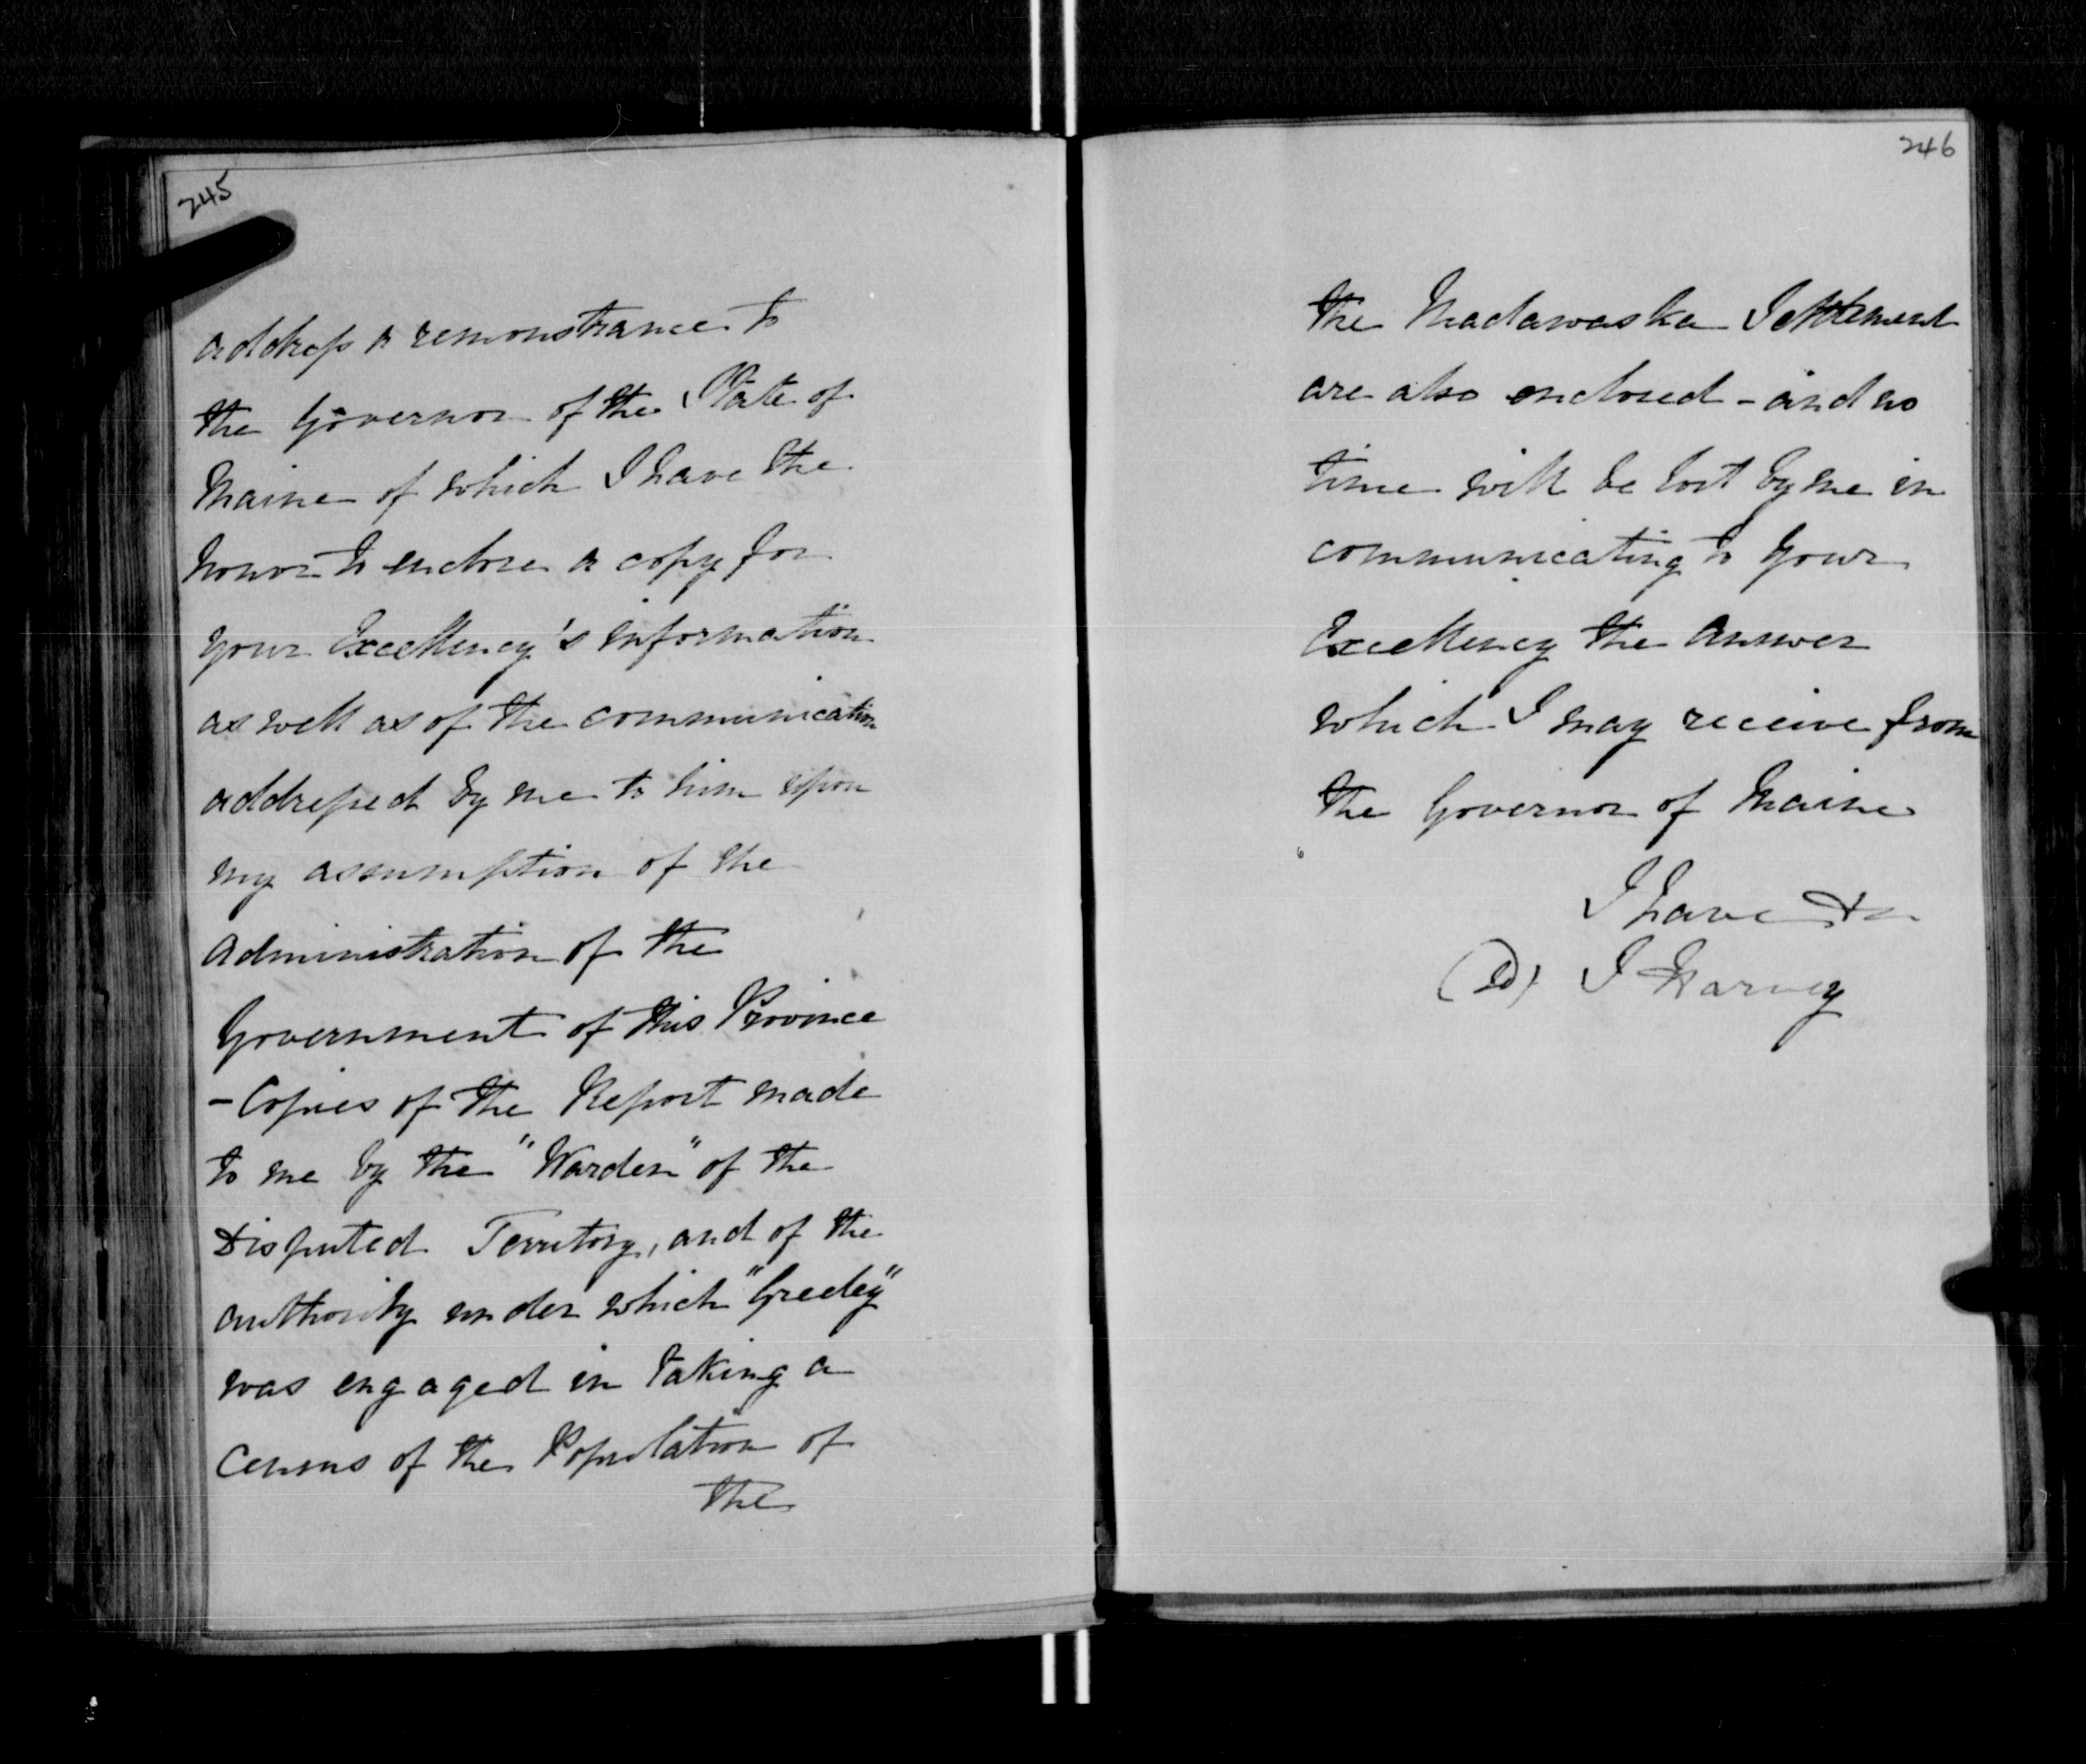 245
address a remonstrance to
the Governor of the State of
Maine of which I have the
honor to enclose a copy for
your Excellency's information
as well as of the communication
addressed by me to him upon
my assumption of the
Administration of the
Government of this Province
- Copies of the Report made
to me by the "Warden" of the
Disputed Territory, and of the
authority under which "Greeley"
was engaged in taking a
Census of the Population of
the
246
the Madawaska Settlement
are also enclosed - and no
time will be lost by me in
communicating to Your
Excellency the answer
which I may receive from
the Governor of Maine
I have &c
(Sd) J Harvey